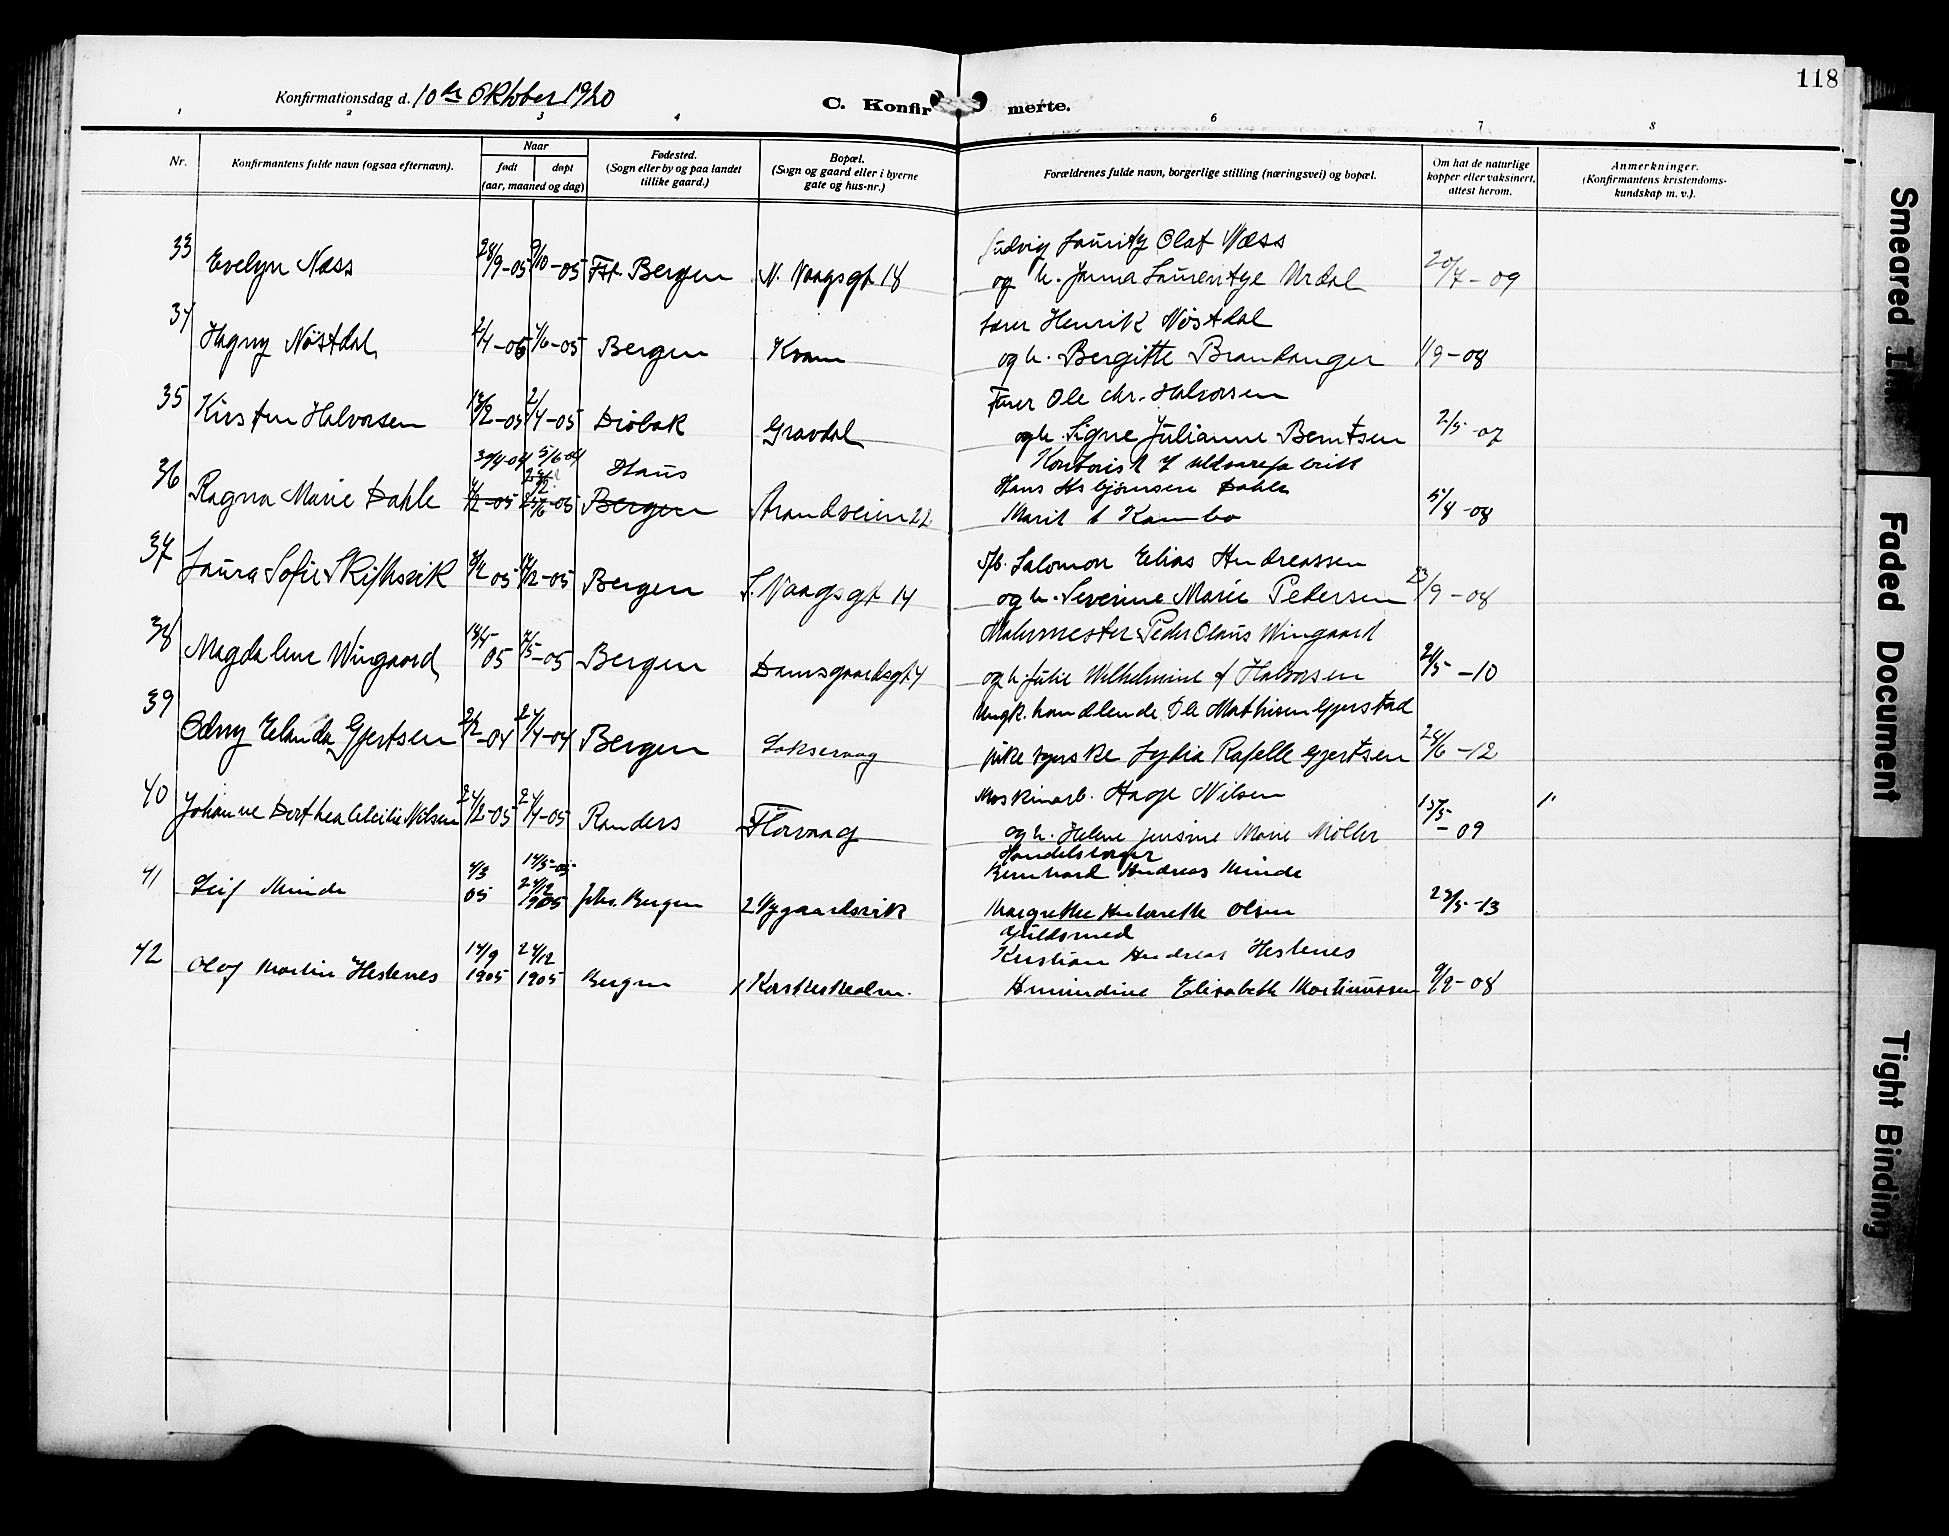 118
Konfirmationsdag d. 10de Oktober 1920
C. Konfirmerte.
1 2 3 4 6 7 8
Nr.
Konfirmantens fulde navn (ogsaa efternavn).
Naar
født døpt
(aar, maaned og dag)
Fødested.
(Sogn eller by og paa landet
tillike gaard.)
Bopæl.
(Sogn og gaard eller i byerne
gate og hus-nr.)
Forældrenes fulde navn, borgerlige stilling (næringsvei) og bopæl.
Om hat de naturlige
kopper eller vaksinert,
attest herom.
Anmerkninger.
(Konfirmantens kristendoms-
kundskap m. v.).
Ludvig Lauritz Olaf Næss
33 Evelyn Næss 28/9-05 9/10-05 Fst. Bergen N. Vaagsgt 18 og h. Laurentze Urdal 20/7-09
Henrik Nøstdal
34 Hagny Nøstdal 2/4-05 /6-05 Bergen Kvam og h. Bergitte Brandanger 1/9-08
Fører Ole Chr. Halvorsen
35 Kirsten Halvorsen 12/2-05 2/4-05 Drøbak Gravdal og h. Signe Julianne Berntsen 2/5-07
30/4-04 5/6-04 Haus Kontorist
Hans Asbjørnsen Dahle
36 Ragna Marie Dahle 2-05 -05 Bergen Strandveien 22 Marit Kambo 5/8-08
Salomon Elias Andreassen
37 Laura Sofie Skifteswik 05 /2-05 Bergen S. Vaagsgt 14 og h. Severine Marie Pedersen 23/9-08
Malermester Peder Olaus Wingaard
38 Magdalene Wingaard 18/4-05 /5-05 Bergen Damsgaardsgt 4 og h. Julie Wilhelmine f Halvorsen 21/5-10
Ungk. handlende Ole Mathisen Gjerstad
39 Odny Elanda Gjertsen 2/2-04 24/4-04 Bergen Laksevaag pike syerske Lydia Rafelle Gjertsen 28/6-12
Maskinarb. Aage Nilsen
40 Johanne Dorthea Cecilie Nilsen 24/2-05 24/4-05 Randers Florvaag og h. Helene Jensine Marie Møller 15/5-09 1
Handelsborger
14/5-05 Bernhard Andreas Minde
41 Leif Minde 4/3 05 24/12 1905 Johs. Bergen 2 Nygaardsvik Margrethe Antonette Olsen 23/5-13
Guldsmed
Kristian Andreas Hestenes
42 Olaf Martin Hestenes 14/9 1905 24/12 1905 Bergen 1 Kirkesholm. Amundine Elisabeth Martinussen 9/9-08
Smeared Ink
Faded Document
Tight Binding